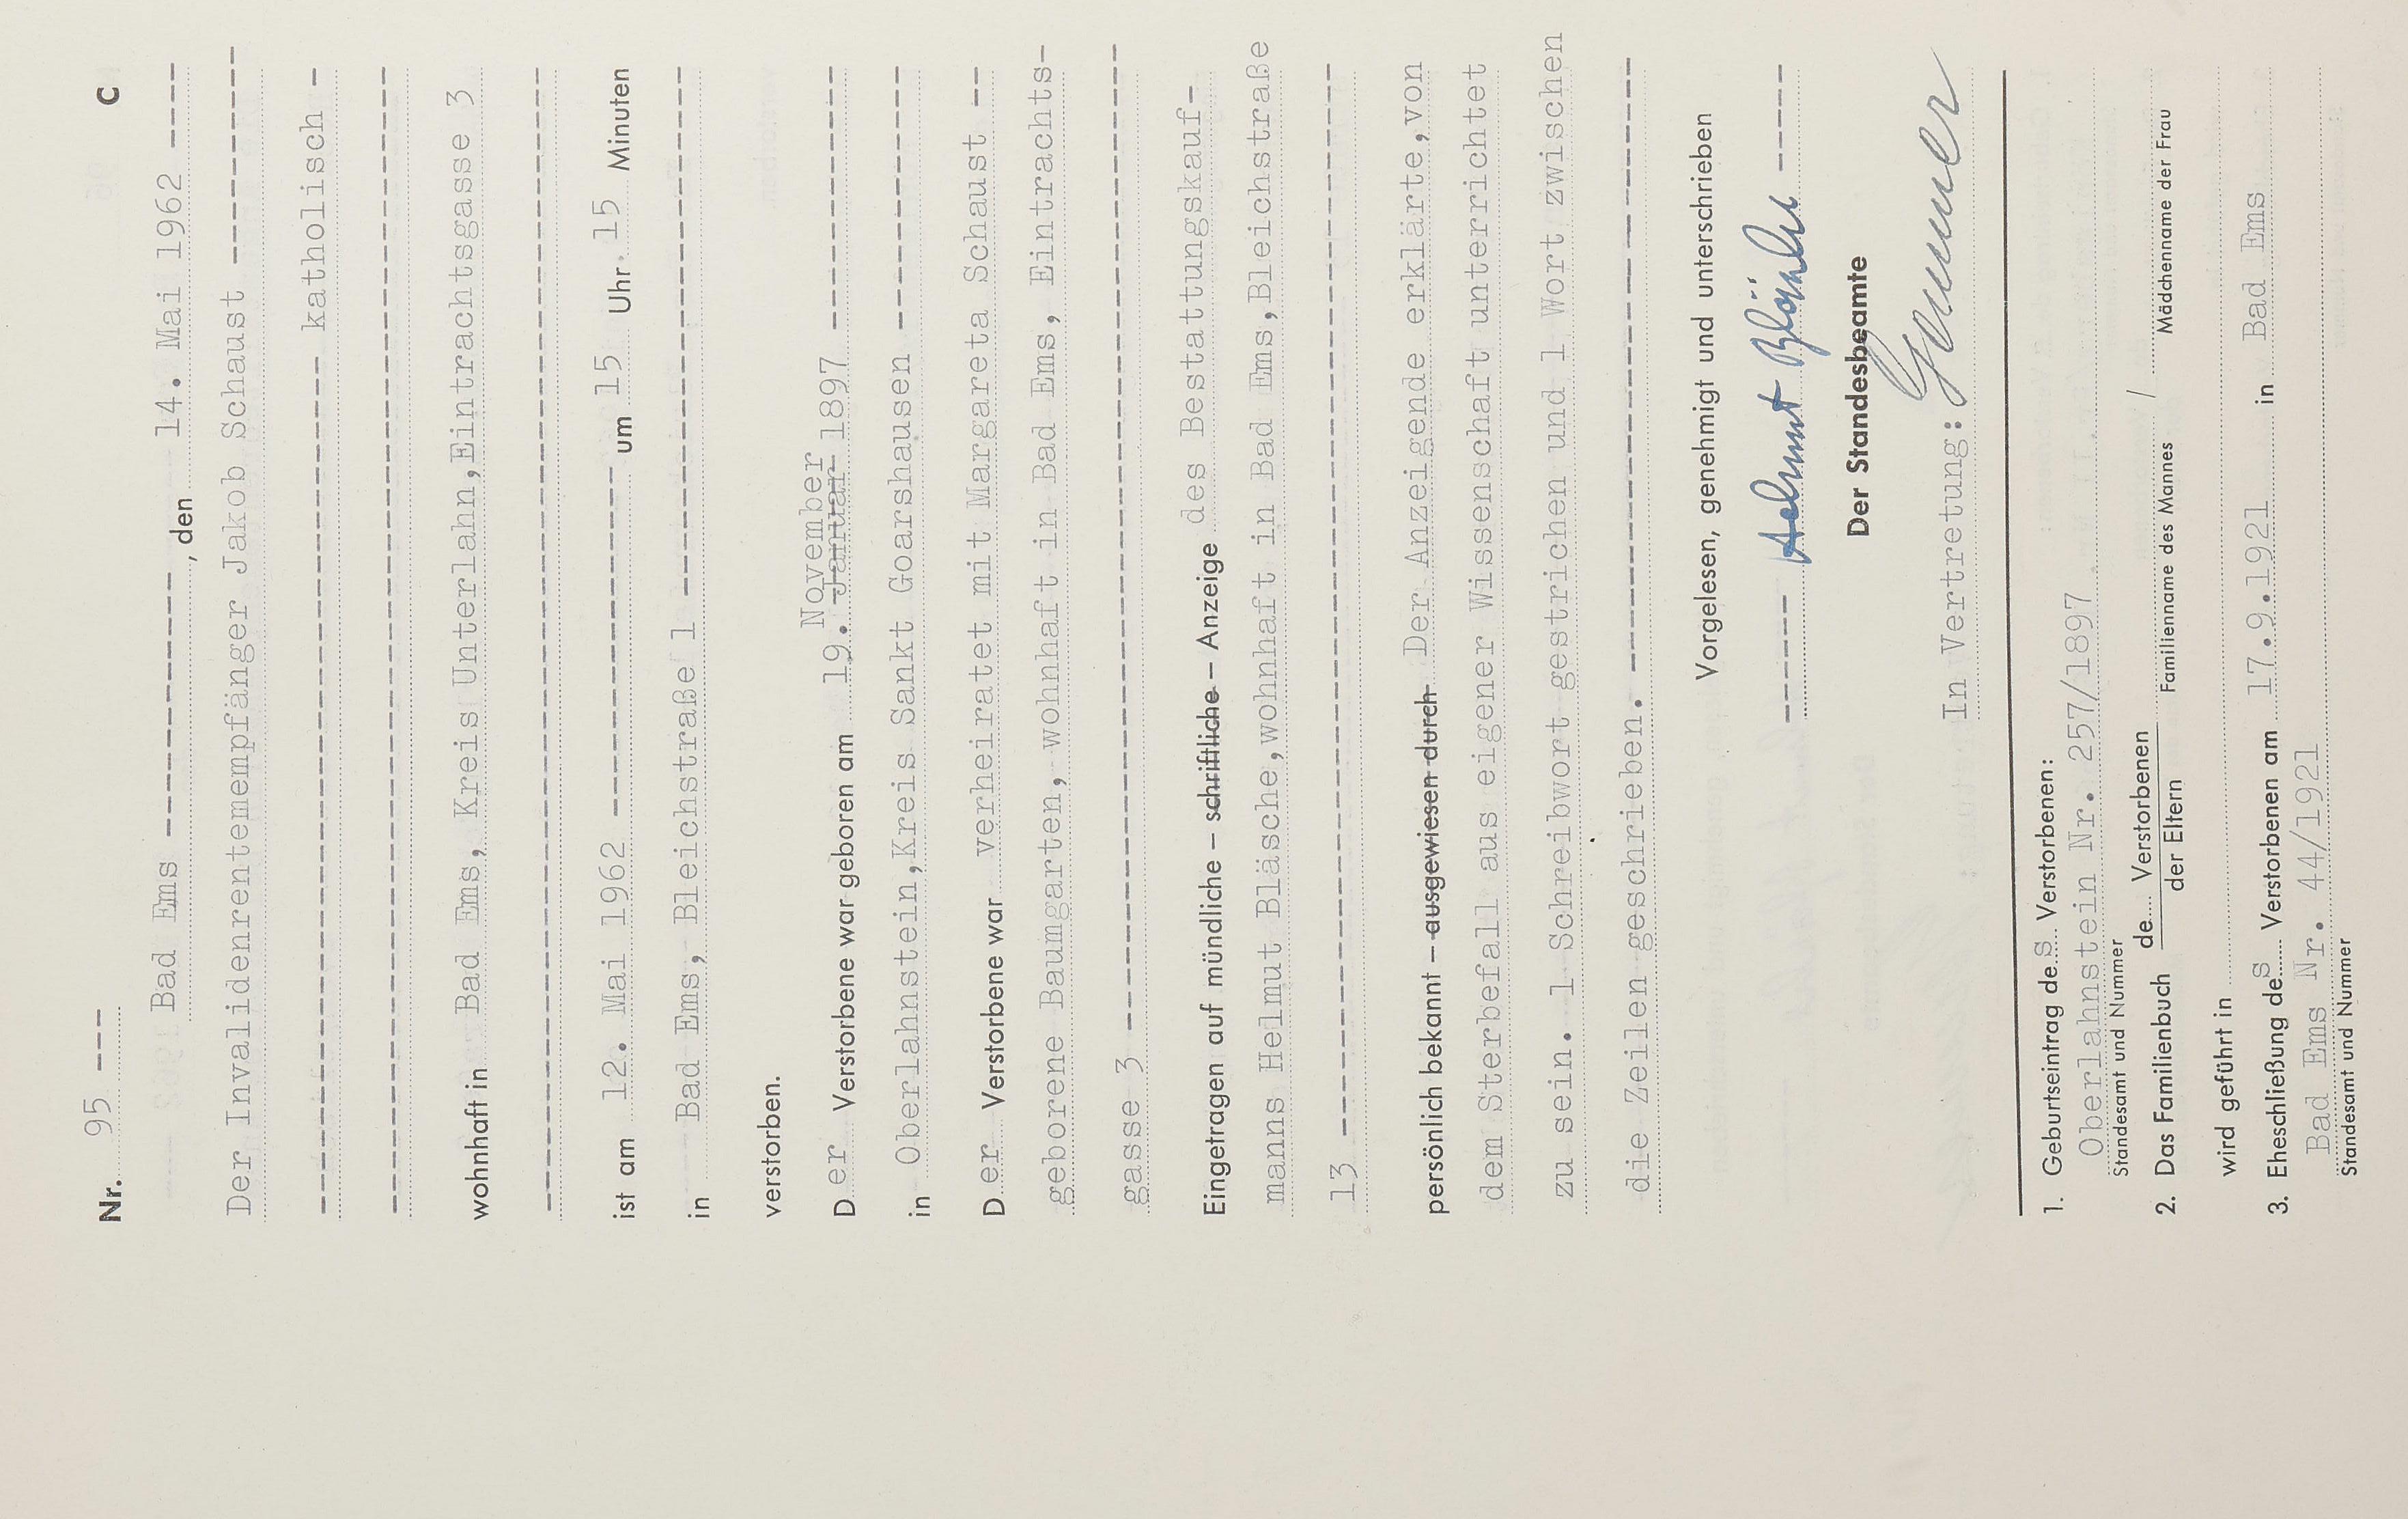 Nr. 95 --- C
Bad Ems ------------, den 14. Mai 1962 ----
Der Invalidenrentenempfänger Jakob Schaust ----------
katholisch -
wohnhaft in Bad Ems, Kreis Unterlahn,Eintrachtsgasse 3
ist am 12. Mai 1962 ---------------- um 15 Uhr 15 Minuten
in Bad Ems, Bleichstraße 1 ------------------------
verstorben.
November
Der Verstorbene war geboren am 19. Januar 1897 ------------
in Oberlahnstein,Kreis Sankt Goarshausen ------------
Der Verstorbene war verheiratet mit Margareta Schaust --
geborene Baumgarten, wohnhaft in Bad Ems, Eintrachts-
gasse 3 ---------------------------------------------
Eingetragen auf mündliche – schriftliche – Anzeige des Bestattungskauf-
manns Helmut Bläsche,wohnhaft in Bad Ems,Bleichstraße
13 -------------------------------------------------
persönlich bekannt – ausgewiesen durch Der Anzeigende erklärte,von
dem Sterbefall aus eigener Wissenschaft unterrichtet
zu sein. 1 Schreibwort gestrichen und 1 Wort zwischen
die Zeilen geschrieben. ----------------------------
Vorgelesen, genehmigt und unterschrieben
------ Helmut Bläsche -----
Der Standesbeamte
In Vertretung:
1. Geburtseintrag des Verstorbenen:
Oberlahnstein Nr. 257/1897
Standesamt und Nummer
2. Das Familienbuch de.... Verstorbenen / der Eltern /
Familienname des Mannes Mädchenname der Frau
wird geführt in
3. Eheschließung des Verstorbenen am 17.9.1921 in Bad Ems
Bad Ems Nr. 44/1921
Standesamt und Nummer